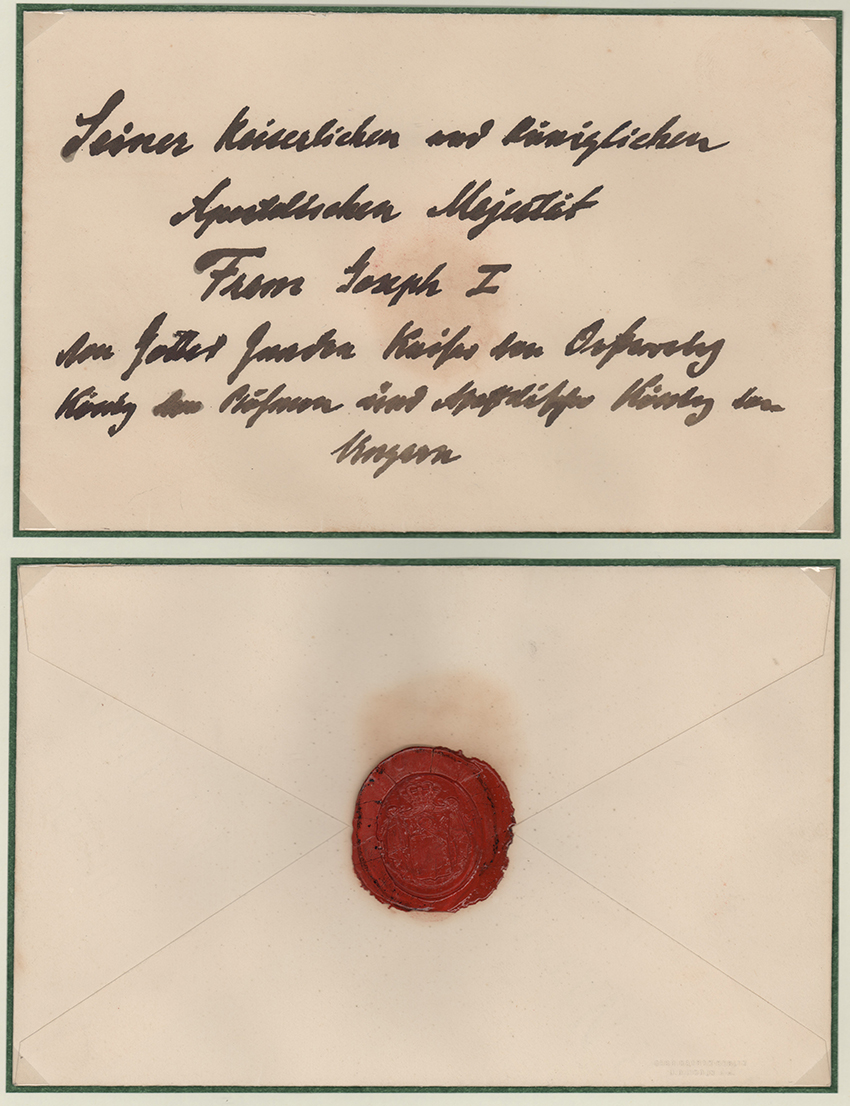 Seiner Keiserlichen und Königlichen
Apostolischen Majestät
Franz Joseph I
von Gottes Gnaden Kaiser von Oesterreich
König von Böhmen und Apostolischer König von
Ungarn